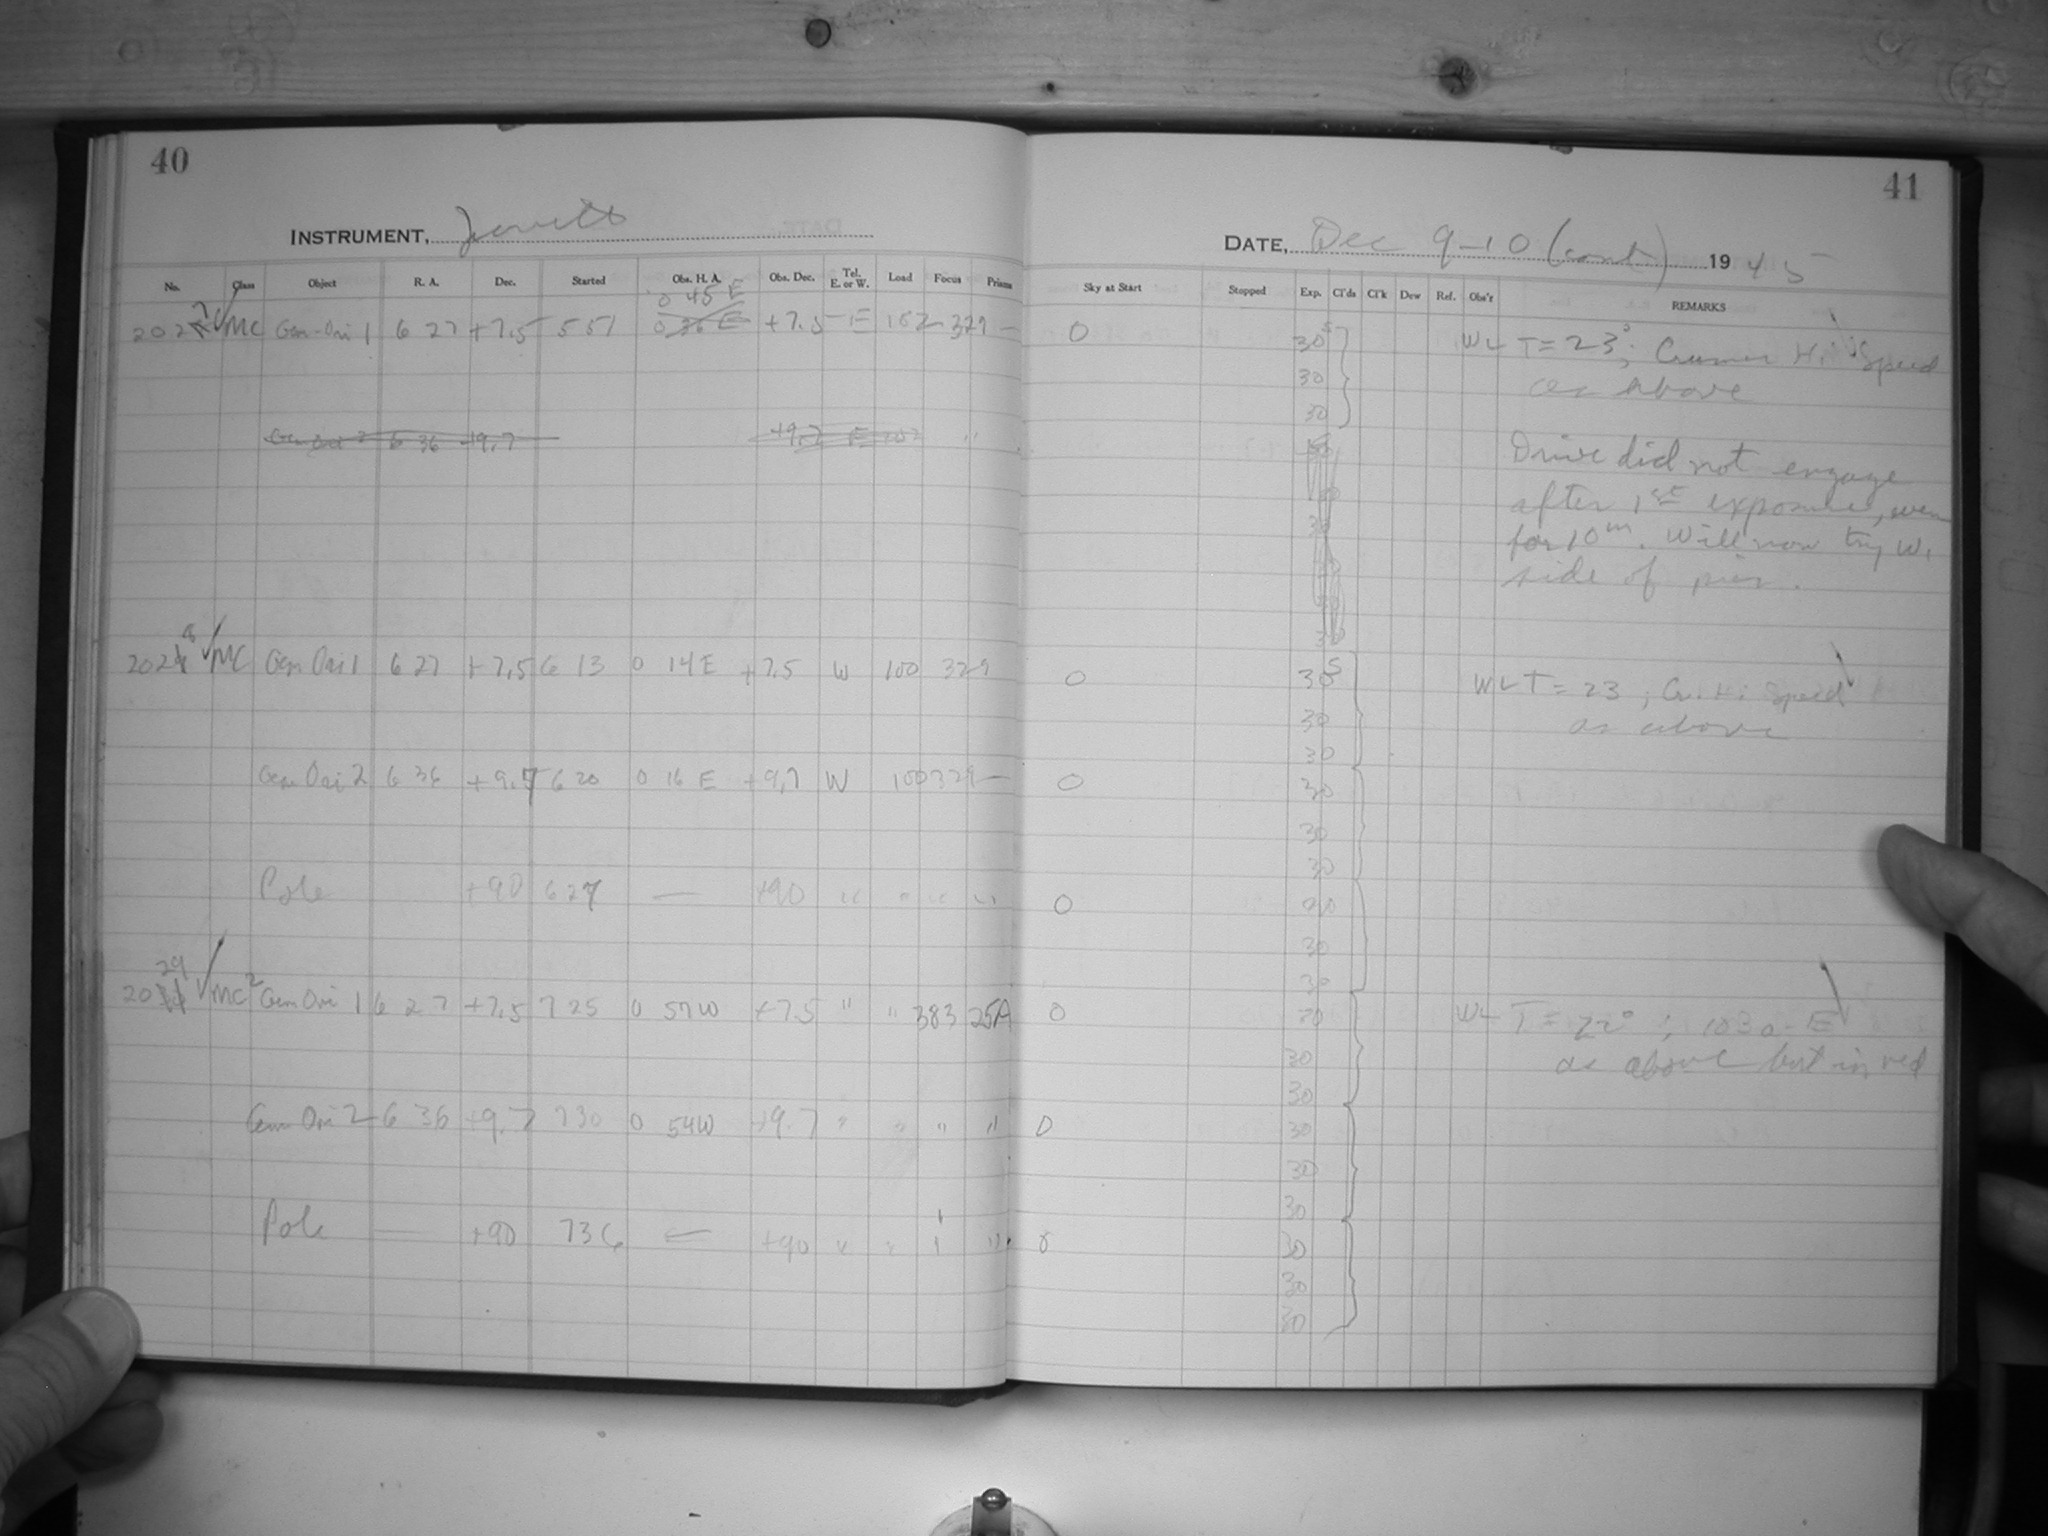 40
INSTRUMENT, Jewett
No. Class Object R. A. Dec. Started Obs. H. A. Obs. Dec. Tel. E. or W. Load Focus Prisms
0 45 E
2027 MC Gem-Ori 1 6 27 +7.5 5 51 0 36 E +7.5 E 102 329 —
Gem Ori 2 6 36 +9.7 +9.7 E 102 "
8
202 MC Gem Ori 1 6 27 +7.5 6 13 0 14 E +7.5 W 100 329
Gem Ori 2 6 36 +9.7 6 20 0 16 E +9.7 W 100 329 —
Pole +90 6 27 — +90 " " " "
29
20 MC2 Gem Ori 1 6 27 +7.5 7 25 0 57 W +7.5 " " 383 25A
Gem Ori 2 6 36 +9.7 7 30 0 54 W +9.7 " " " "
Pole — +90 7 36 — +90 " " " "
41
DATE, Dec 9-10 (cont) 1945
Sky at Start Stopped Exp. Cl'ds Cl'k Dew Ref. Obs'r REMARKS
0 30s WL T = 23°; Cramer Hi Speed
30 as above
30
Drive did not engage
after 1st exposure, even
for 10m. Will now try W.
side of pier.
0 30s WL T = 23; Cr. Hi Speed
30 as above
30
0 30
30
30
0 30
30
30
0 30 WL T = 22°; 103a-E
30 as above but in red
30
0 30
30
30
0 30
30
30